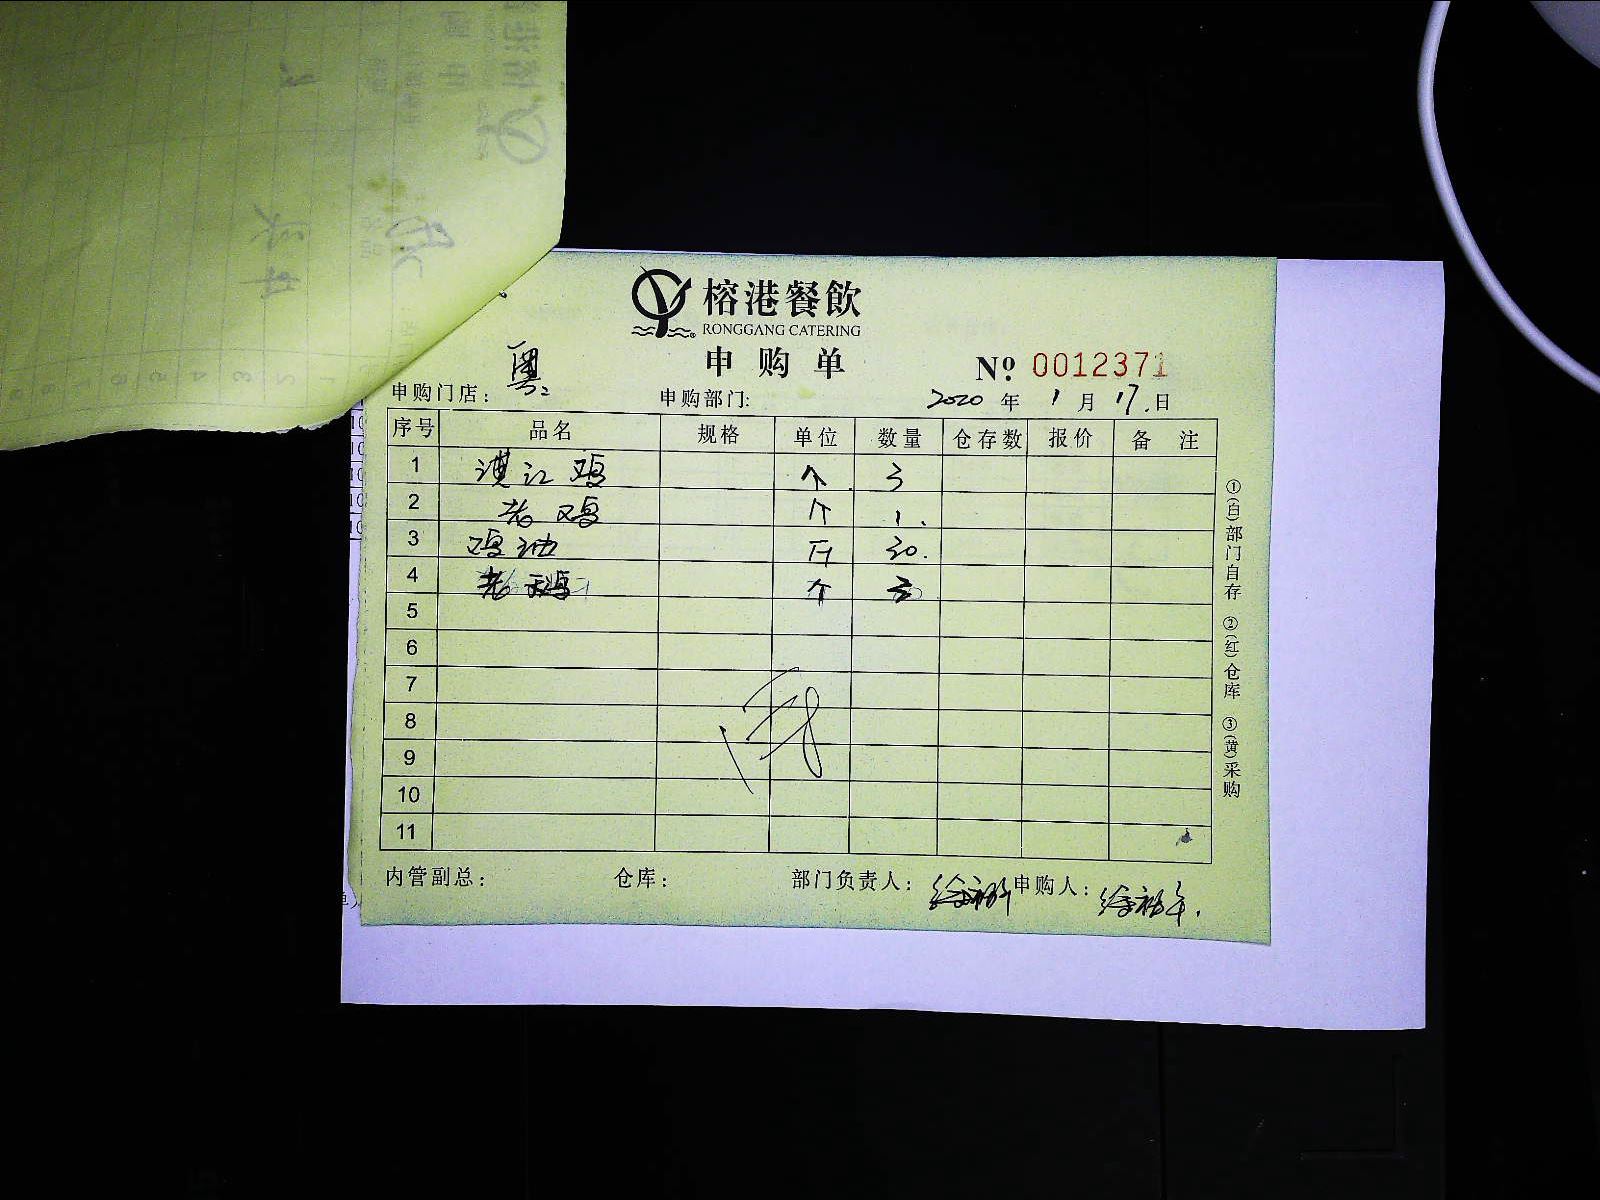 榕港餐飲
RONGGANG CATERING
申购单
№ 0012371
申购门店: 粤2 申购部门: 2020 年 1 月 17 日
序号 品名 规格 单位 数量 仓存数 报价 备注
1 湛江鸡 个 3
2 老鸡 个 1
3 鸡油 斤 30.
4 老鸡 个
5
6
7
8
9
10
11
①(白)部门自存 ②(红)仓库 ③(黄)采购
内管副总: 仓库: 部门负责人: 申购人: